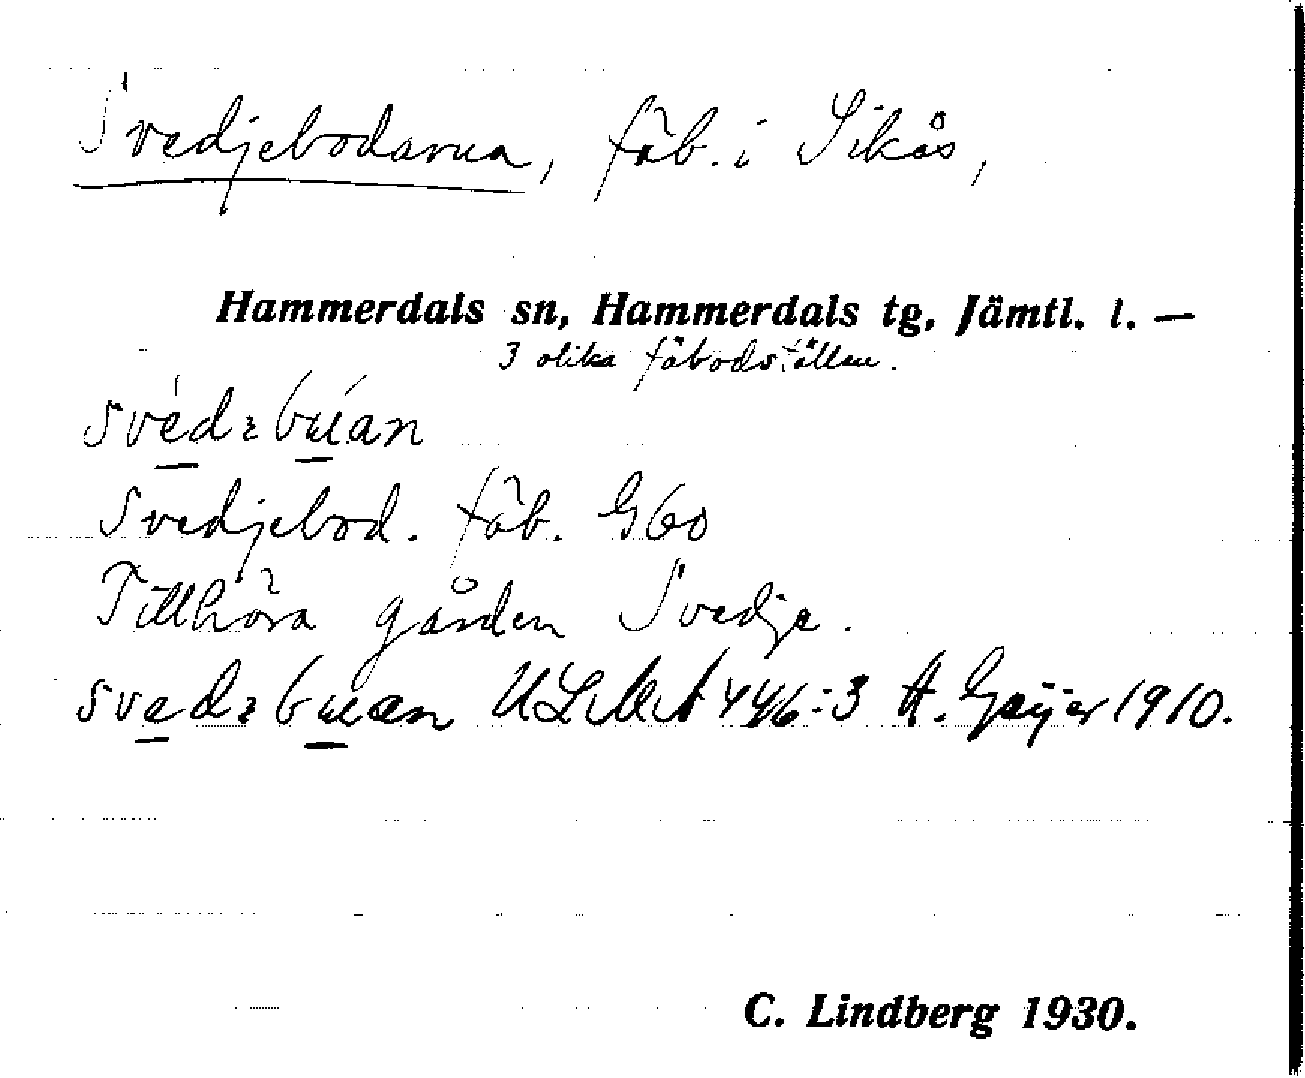 Svedjebodarna, fäb. i Sikås,
Hammerdals sn, Hammerdals tg, Jämtl. l. —
3 olika fäbodställen.
svedₔbuan
Svedjebod. fäb. G60
Tillhöra gården Svedje.
svedₔbuan ULMA 446:3 H. Geijer 1910.
C. Lindberg 1930.